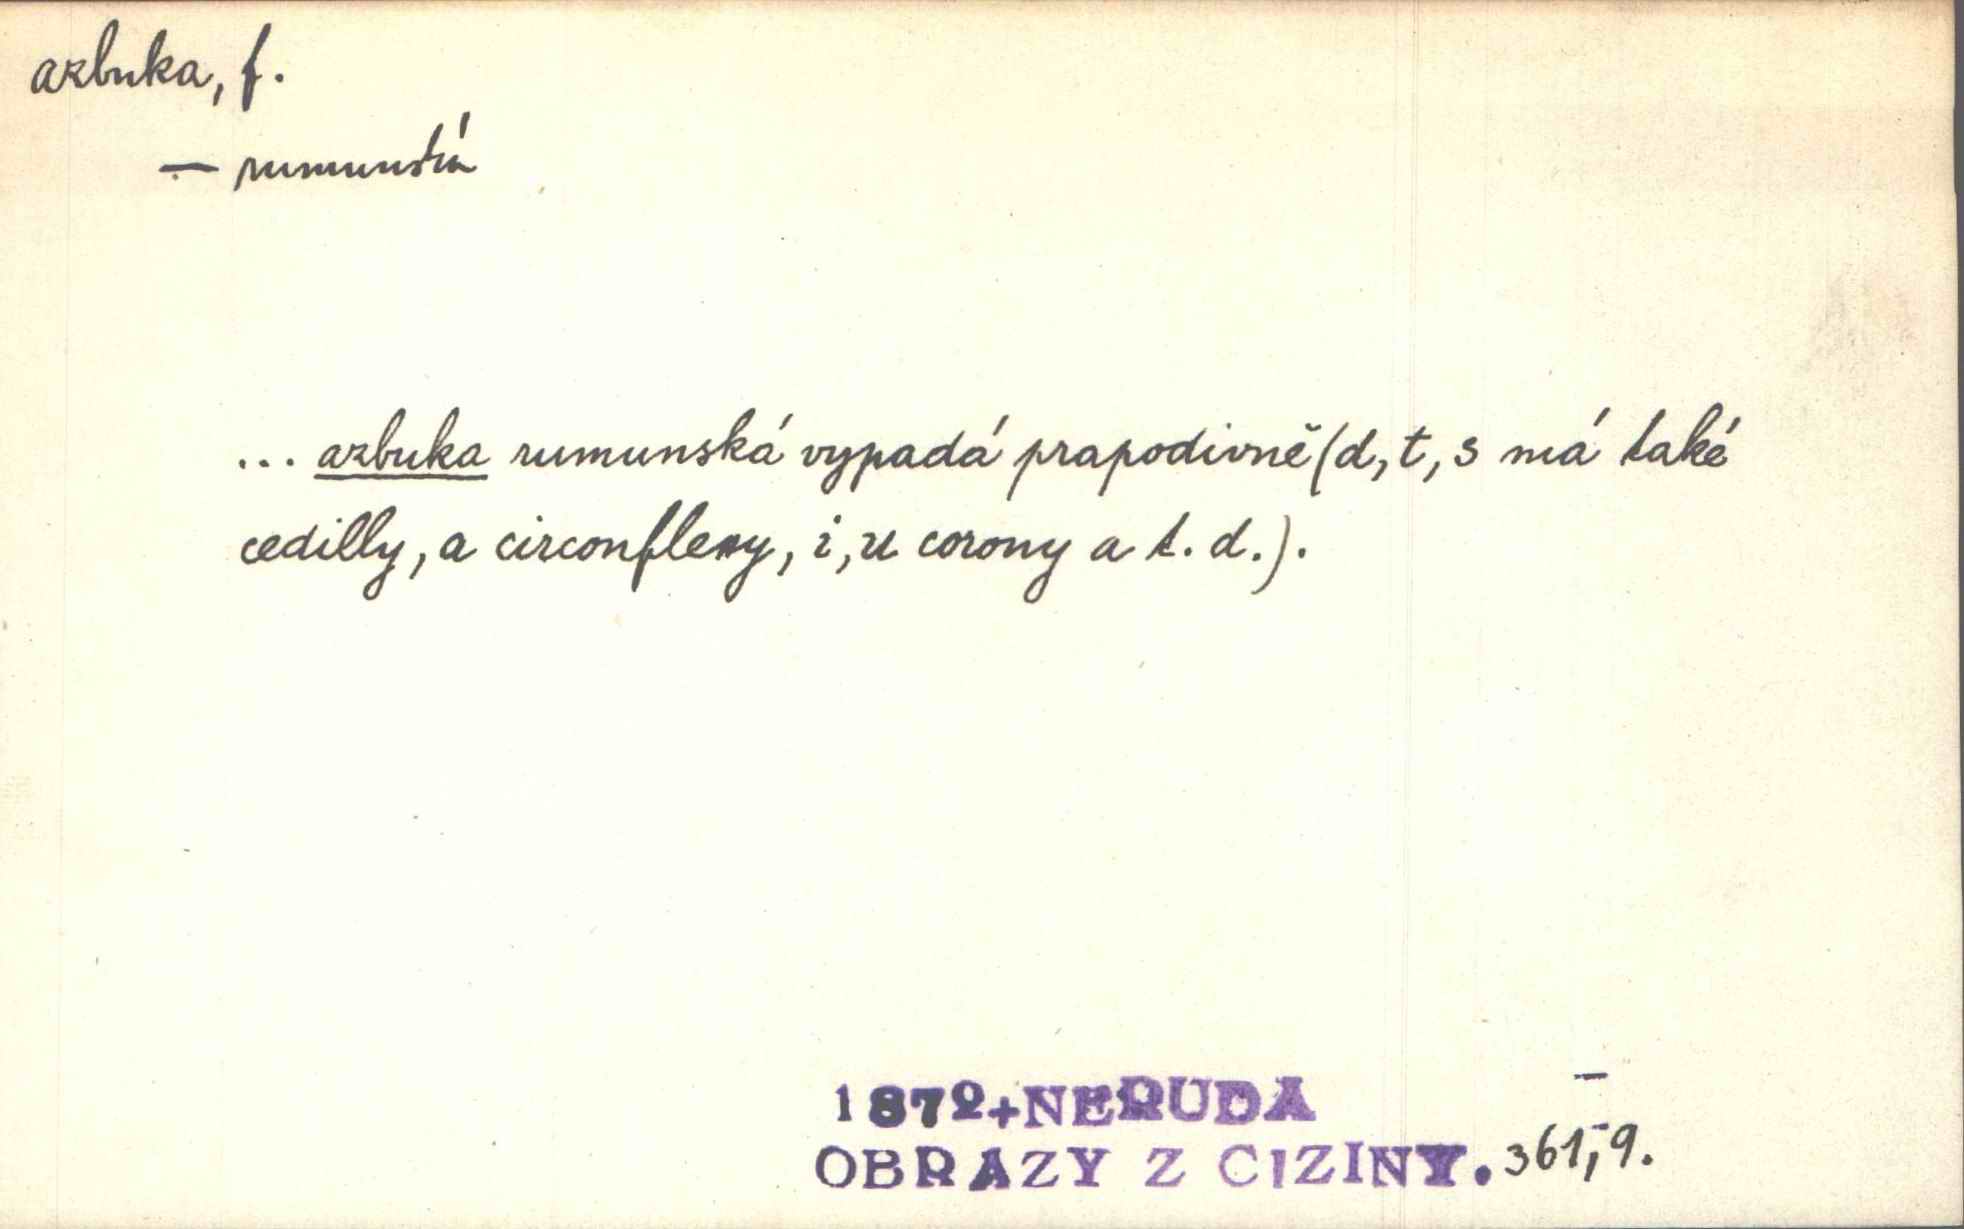 azbuka, f.
— rumunská
... azbuka rumunská vypadá prapodivně (d, t, s má také
cedilly, a circonflexy, i, u corony a t. d.).
1872+NERUDA
OBRAZY Z CIZINY. 361,9.